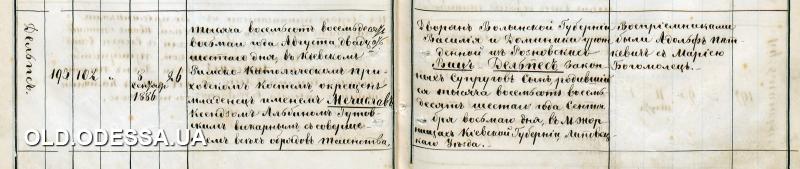 Дельпес.
192 102 „ 8 сентября 1886 26
тысяча восемьсотъ восемьдесятъ
восьмаго года Августа двадцать
шестаго дня, въ Кіевскомъ
Римско-Католическомъ при-
ходскомъ Костелѣ окрещенъ
младенецъ именемъ Мечиславъ
Ксендзомъ Альбиномъ Гутов-
скимъ викарнымъ съ соверше-
ніемъ всѣхъ обрядовъ Таинства,
Дворянъ Волынской Губерніи
Василія и Доминики урож-
денной изъ Розновскихъ
Виц Дельпесъ закон-
ныхъ Супруговъ Сынъ, родивший
ся тысяча восемьсотъ восемь
десятъ шестаго года Сентя-
бря восьмаго дня, въ
Кіевской Губерніи Липовец-
каго Уѣзда.
Воспріемниками
были Адольфъ
съ Маріею
Богомолецъ.
OLD.ODESSA.UA